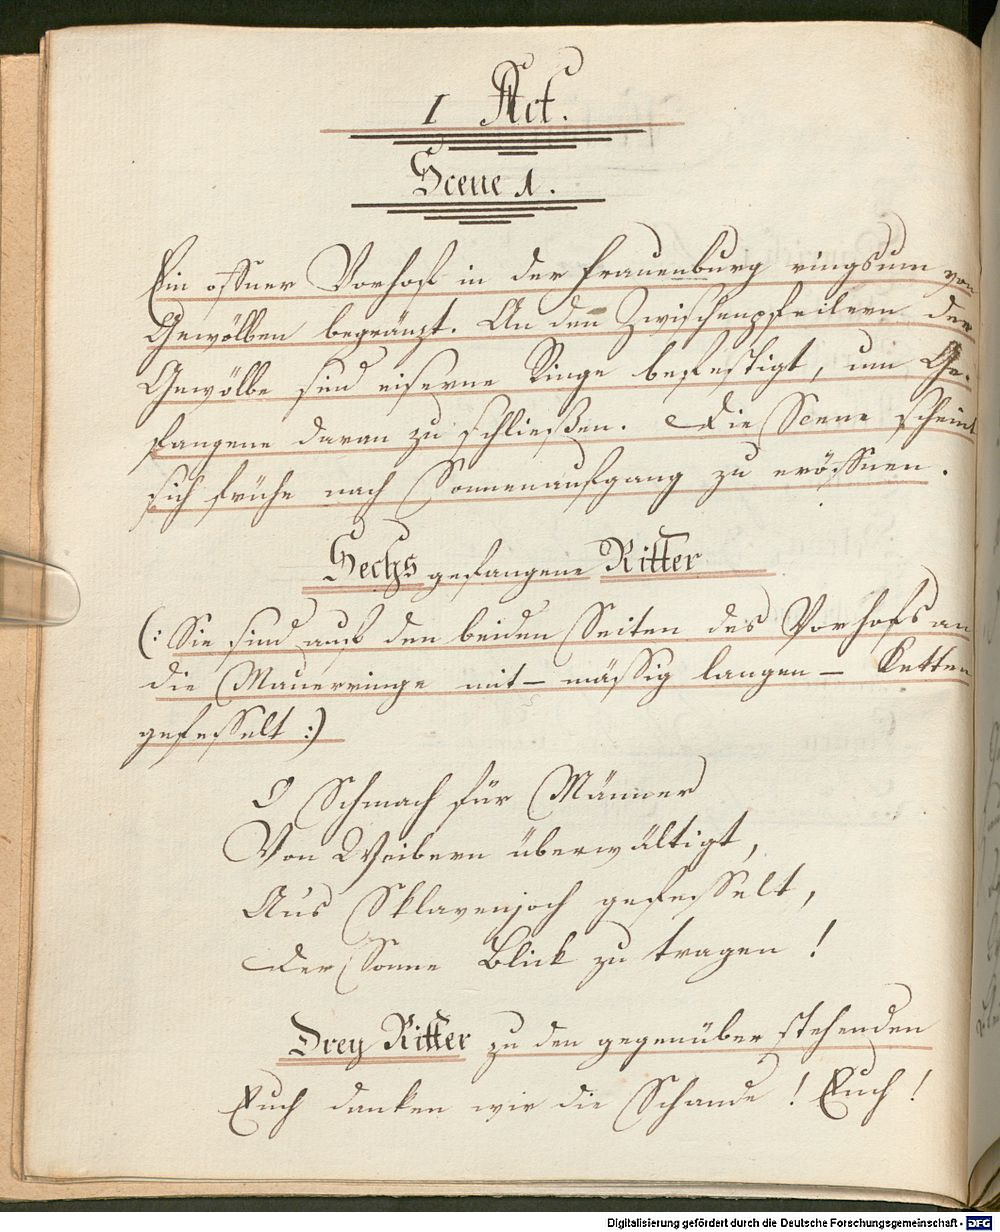 I Act.
Scene 1.
Ein offner Vorhof in der Frauenburg ringsum von
Gewölben begränzt. An den Zwischenpfeilern der
Gewölbe sind eiserne Ringe befestigt, um Ge-
fangene daran zu schließen. Die Scene scheint
sich frühe nach Sonnenaufgang zu eröffnen.
Sechs gefangene Ritter
(: Sie sind auf den beiden Seiten des Vorhofs an
die Mauerringe mit – mässig langen – Ketten
gefesselt :)
O Schmach für Männer
Von Weibern überwältigt,
Ans Sklavenjoch gefesselt,
Der Sonne Blick zu tragen!
Drey Ritter zu den gegenüber stehenden
Euch danken wir die Schande! Euch!
Digitalisierung gefördert durch die Deutsche Forschungsgemeinschaft - DFG